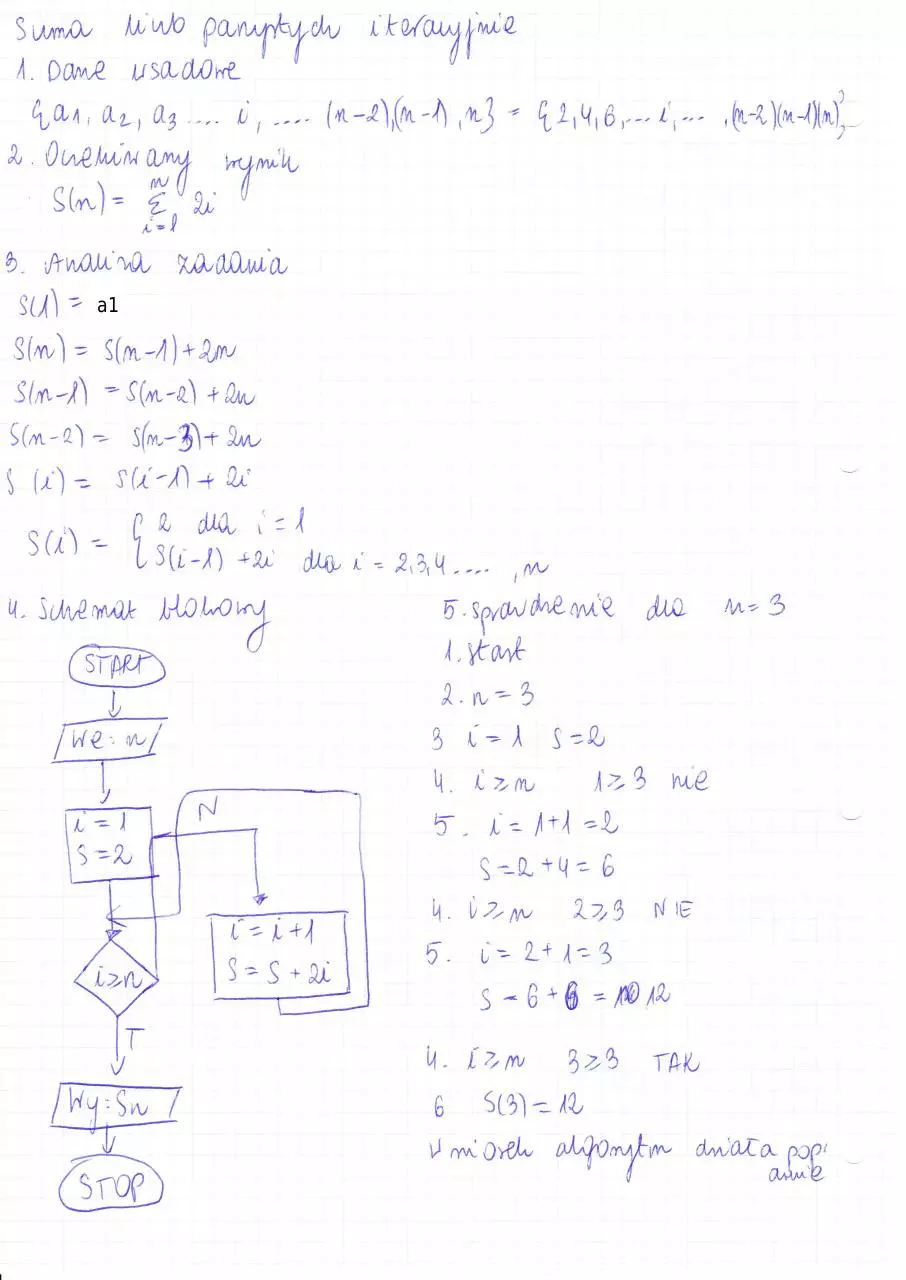 Suma liczb parzystych iteracyjnie
1. Dane wsadowe
{a1, a2, a3 .... i, .... (n-2),(n-1), n} = {2,4,6,... i,... ,(n-2)(n-1)(n)}
2. Oczekiwany wynik
S(n) = n Σ i=1 2i
3. Analiza zadania
S(1) = a1
S(n) = S(n-1)+2n
S(n-1) = S(n-2)+2n
S(n-2) = S(n-3)+2n
S(i) = S(i-1)+2i
S(i) = { 2 dla i=1
S(i-1)+2i dla i=2,3,4....,n
4. Schemat blokowy
START
We: n
i=1
S=2
N
i=i+1
S=S+2i
i≥n
T
Wy: Sn
STOP
5. Sprawdzenie dla n=3
1. start
2. n=3
3 i=1 S=2
4. i≥n 1≥3 nie
5. i=1+1=2
S=2+4=6
4. i≥n 2≥3 NIE
5. i=2+1=3
S=6+6=12
4. i≥n 3≥3 TAK
6 S(3)=12
Wniosek algorytm działa